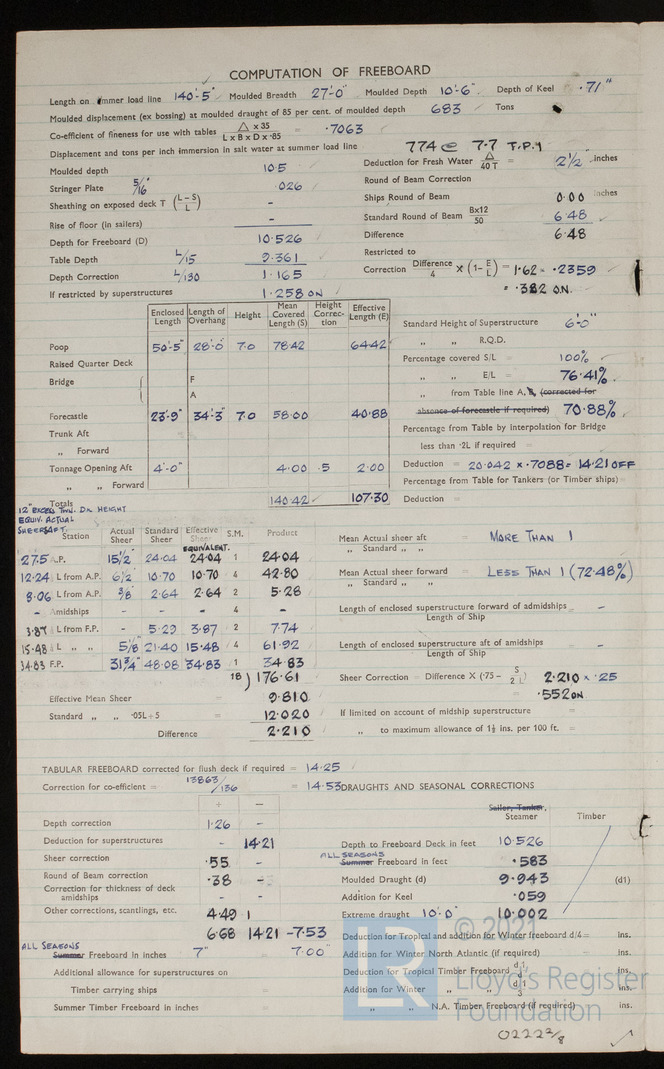 COMPUTATION OF FREEBOARD
Length on summer load line 140'-5" Moulded Breadth 27'-0" Moulded Depth 10'-6" Depth of Keel .71"
Moulded displacement (ex bossing) at moulded draught of 85 per cent. of moulded depth 683 Tons
Co-efficient of fineness for use with tables △ x 35 / L x B x D x .85 = .7063
Displacement and tons per inch immersion in salt water at summer load line 774 @ 7.7 T.P.I
Moulded depth 10.5
Stringer Plate 5/16 .026
Sheathing on exposed deck T (L-S / L) -
Rise of floor (in sailers) -
Depth for Freeboard (D) 10.526
Table Depth L/15 9.361
Depth Correction L/130 1.165
If restricted by superstructures 1.258 ON
Deduction for Fresh Water △ / 40T = 2½" inches
Round of Beam Correction
Ships Round of Beam 0.00 inches
Standard Round of Beam Bx12 / 50 6.48
Difference 6.48
Restricted to
Correction Difference / 4 x (1- E / L) = 1.62 x .2359
= .382 O.N.
Enclosed Length Length of Overhang Height Mean Covered Length (S) Height Correction Effective Length (E)
Poop 50'-5" 28'-0" 7.0 78.42 64.42
Raised Quarter Deck
Bridge { F
A
Forecastle 23'-9" 34'-3" 7.0 58.00 40.88
Trunk Aft
" Forward
Tonnage Opening Aft 4'-0" 4.00 .5 2.00
" " Forward
Totals 140.42 107.30
Standard Height of Superstructure 6'-0"
" " R.Q.D.
Percentage covered S/L = 100%
" " E/L = 76.41%
" from Table line A, B, (corrected for
absence of forecastle if required) 70.88%
Percentage from Table by interpolation for Bridge
less than .2L if required =
Deduction = 20.042 x .7088 = 14.21 OFF
Percentage from Table for Tankers (or Timber ships) =
Deduction =
12" EXCESS DK. HEIGHT
EQUIV. ACTUAL
SHEER AFT.
Station Actual Sheer Standard Sheer Effective Sheer EQUIVALENT. S.M. Product
27.5 A.P. 15½" 24.04 24.04 1 24.04
12.24 L from A.P. 6½ 10.70 10.70 4 42.80
8.06 L from A.P. 3/8 2.64 2.64 2 5.28
- Amidships - - - 4 -
3.87 L from F.P. - 5.29 3.87 2 7.74
15.48 L " " 5/8 21.40 15.48 4 61.92
34.83 F.P. 31¾" 48.08 34.83 1 34.83
18 ) 176.61
Effective Mean Sheer = 9.810
Standard " " .05L+5 = 12.020
Difference 2.210
Mean Actual sheer aft = MORE THAN 1
" Standard " "
Mean Actual sheer forward = LESS THAN 1 (72.48%)
" Standard " "
Length of enclosed superstructure forward of admidships / Length of Ship = -
Length of enclosed superstructure aft of amidships / Length of Ship = -
Sheer Correction = Difference X (.75 - S / 2L) 2.210 x .25
= .552 ON
If limited on account of midship superstructure =
" to maximum allowance of 1½ ins. per 100 ft. =
TABULAR FREEBOARD corrected for flush deck if required = 14.25
Correction for co-efficient = 1.3863 / 1.36 = 14.53
+ -
Depth correction 1.26 -
Deduction for superstructures - 14.21
Sheer correction .55 -
Round of Beam correction .38 -
Correction for thickness of deck amidships - -
Other corrections, scantlings, etc. 4.49
6.68 14.21 -7.53
ALL SEASONS
Summer Freeboard in inches 7" 7.00"
Additional allowance for superstructures on
Timber carrying ships =
Summer Timber Freeboard in inches =
DRAUGHTS AND SEASONAL CORRECTIONS
Sailer, Tanker,
Steamer Timber
Depth to Freeboard Deck in feet 10.526
ALL SEASONS
Summer Freeboard in feet .583
Moulded Draught (d) 9.943 (d1)
Addition for Keel .059
Extreme draught 10'-0" 10.002
Deduction for Tropical and addition for Winter freeboard d/4 = ins.
Addition for Winter North Atlantic (if required) = ins.
Deduction for Tropical Timber Freeboard d1 / 4 ins.
Addition for Winter " " d1 / 3 ins.
" " N.A. Timber Freeboard (if required) ins.
© 2021
LR
Lloyd's Register
Foundation
02222/8